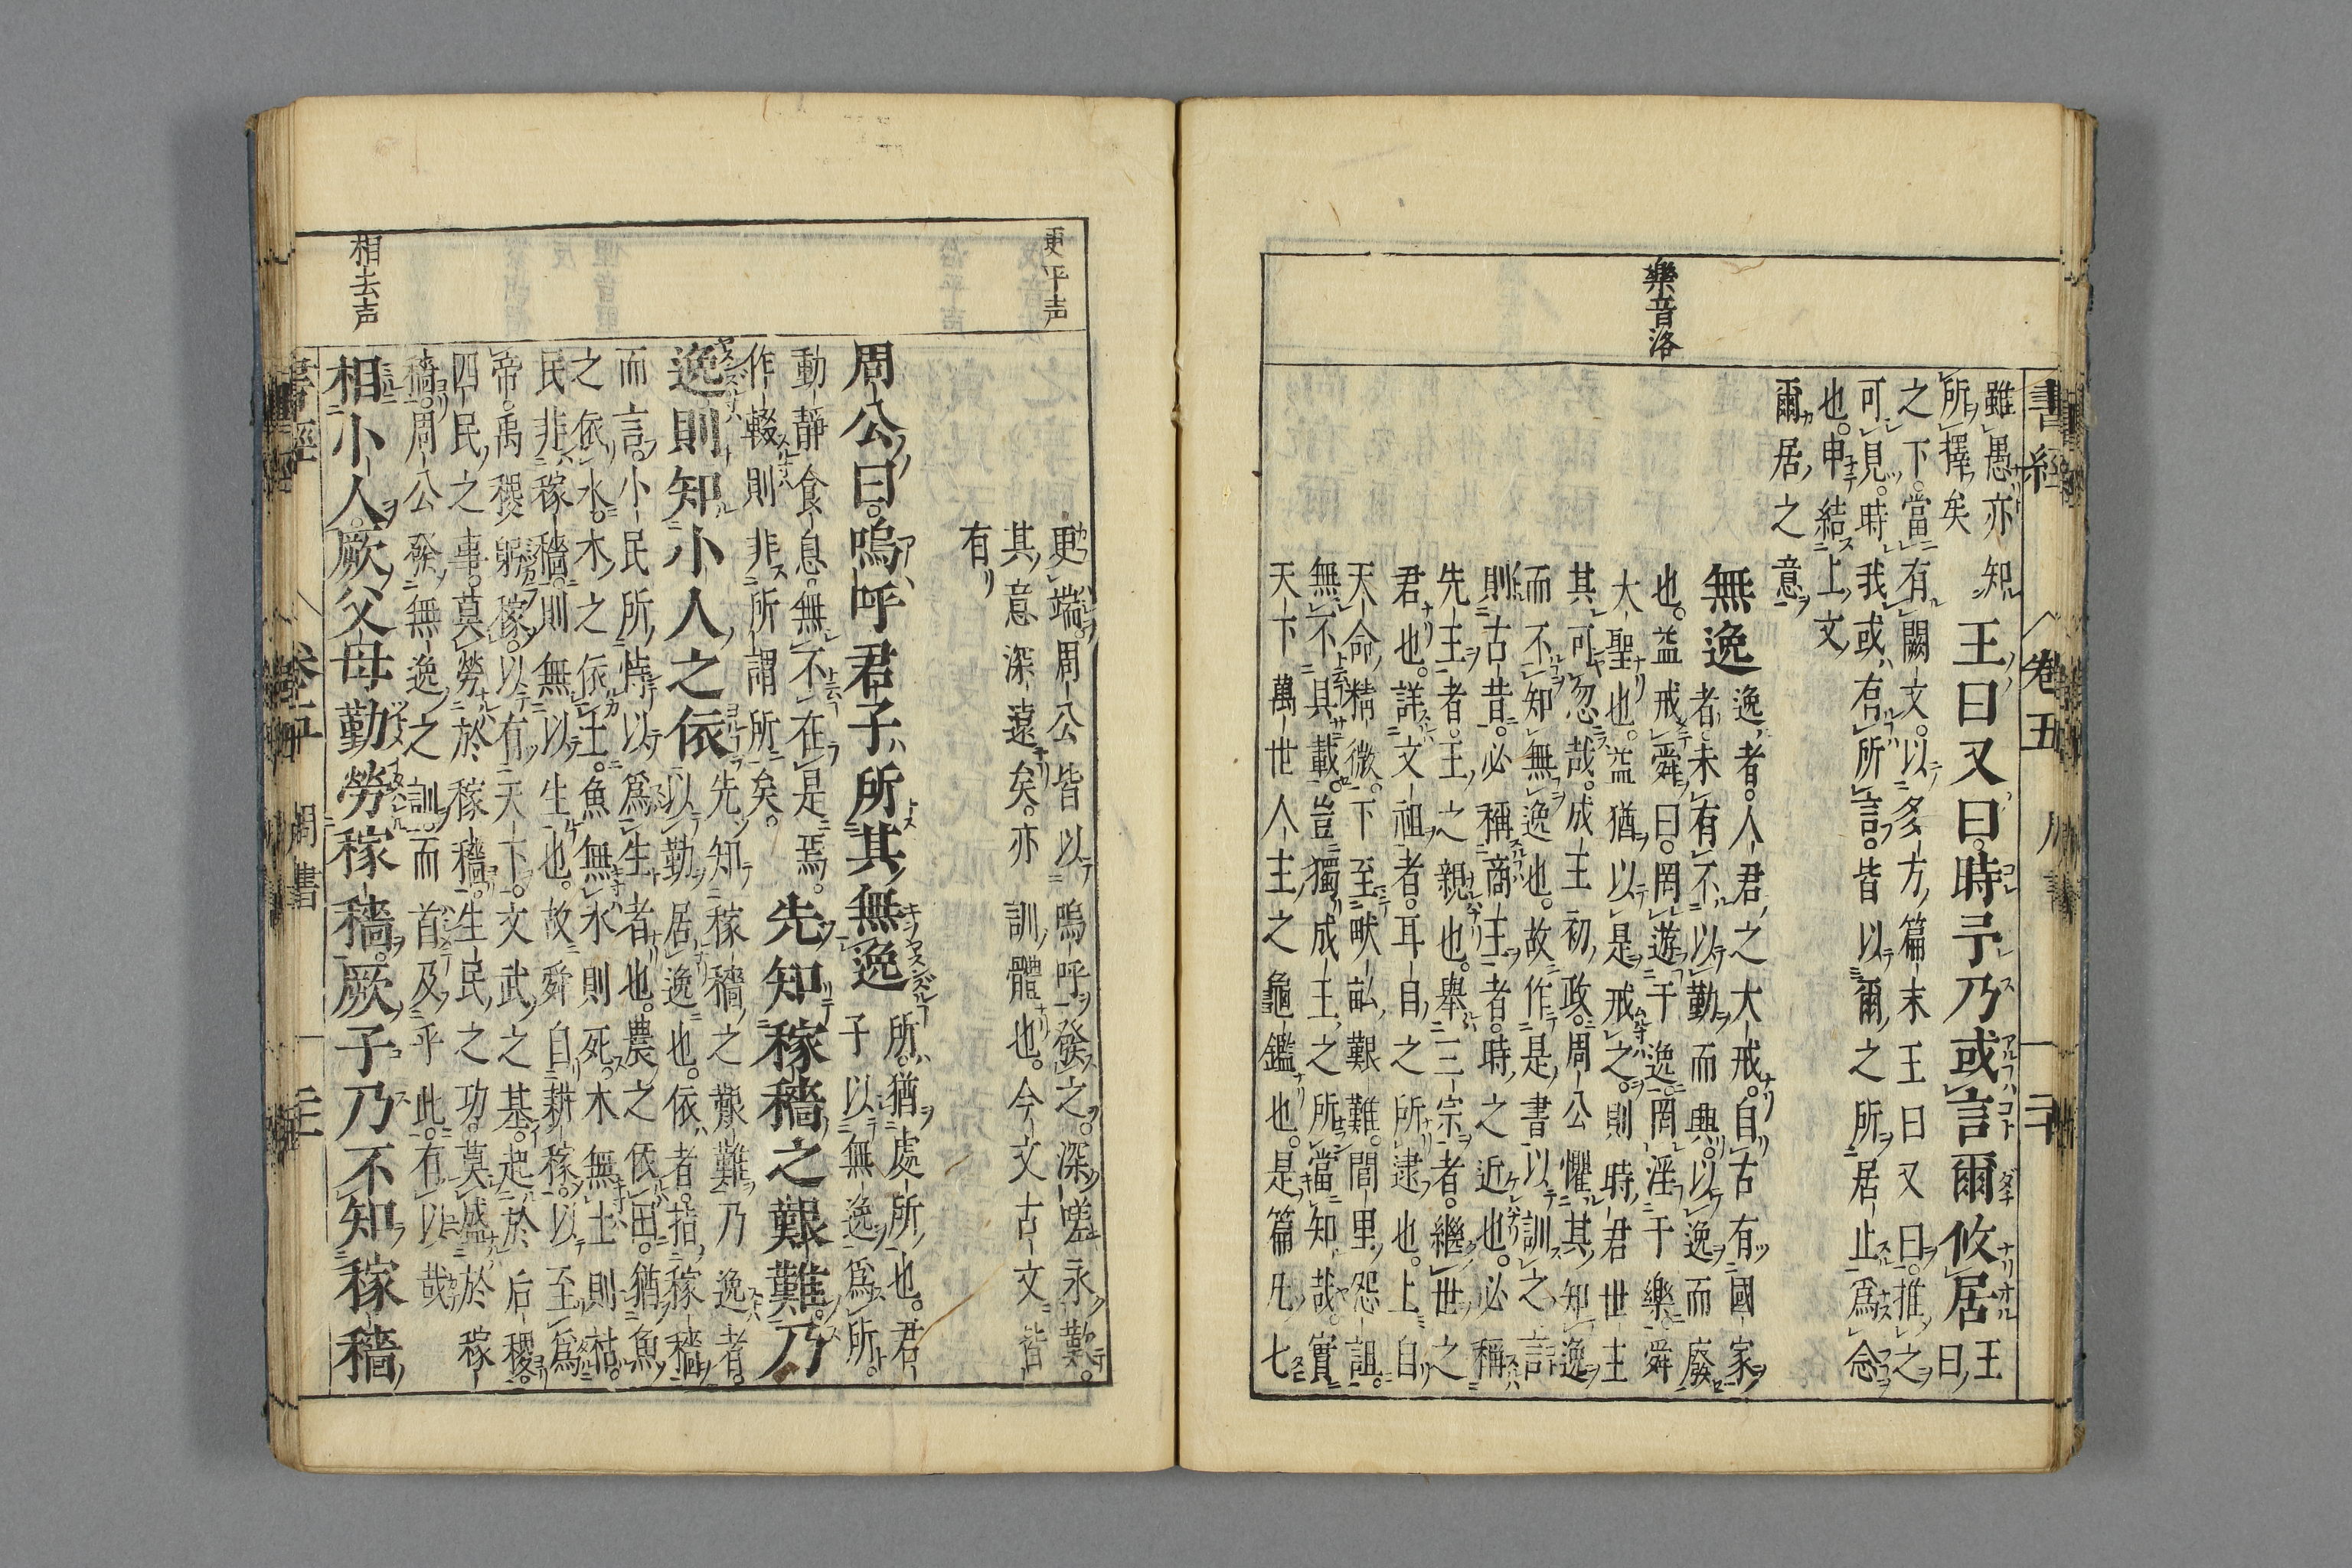 書經 卷五 周書 二十
樂音洛
雖愚亦知
所擇矣
王曰又曰時予乃或言爾攸居
王曰
之下當有闕文以多方篇末王曰又曰推之
可見時我或有所言皆以爾之所居止爲念
也申結上文
爾居之意
無逸
逸者人君之大戒自古有國家
者未有不以勤而興以逸而廢
也益戒舜曰罔遊于逸罔淫于樂舜
大聖也益猶以是戒之則時君世主
其可忽哉成王初政周公懼其知逸
而不知無逸也故作是書以訓之言
則古昔必稱商王者時之近也必稱
先王者王之親也舉三宗者繼世之
君也詳文祖者耳目之所逮也上自
天命精微下至畎畝艱難閭里怨詛
無不具載豈獨成王之所當知哉實
天下萬世人主之龜鑑也是篇凡七
更平声
更端周公皆以嗚呼發之深嗟永歎
其意深遠矣亦訓體也今文古文皆
有
周公曰嗚呼君子所其無逸
所猶處所也君
子以無逸爲所
動靜食息無不在是焉
作輟則非所謂所矣
先知稼穡之艱難乃
逸則知小人之依
先知稼穡之艱難乃逸者
以勤居逸也依者指稼穡
而言小民所恃以爲生者也農之依田猶魚
之依水木之依土魚無水則死木無土則枯
民非稼穡則無以生也故舜自耕稼以至爲
帝禹稷躬稼以有天下文武之基起於后稷
四民之事莫勞於稼穡生民之功莫盛於稼
穡周公發無逸之訓而首及乎此有以哉
相去声
相小人厥父母勤勞稼穡厥子乃不知稼穡
書經 卷五 周書